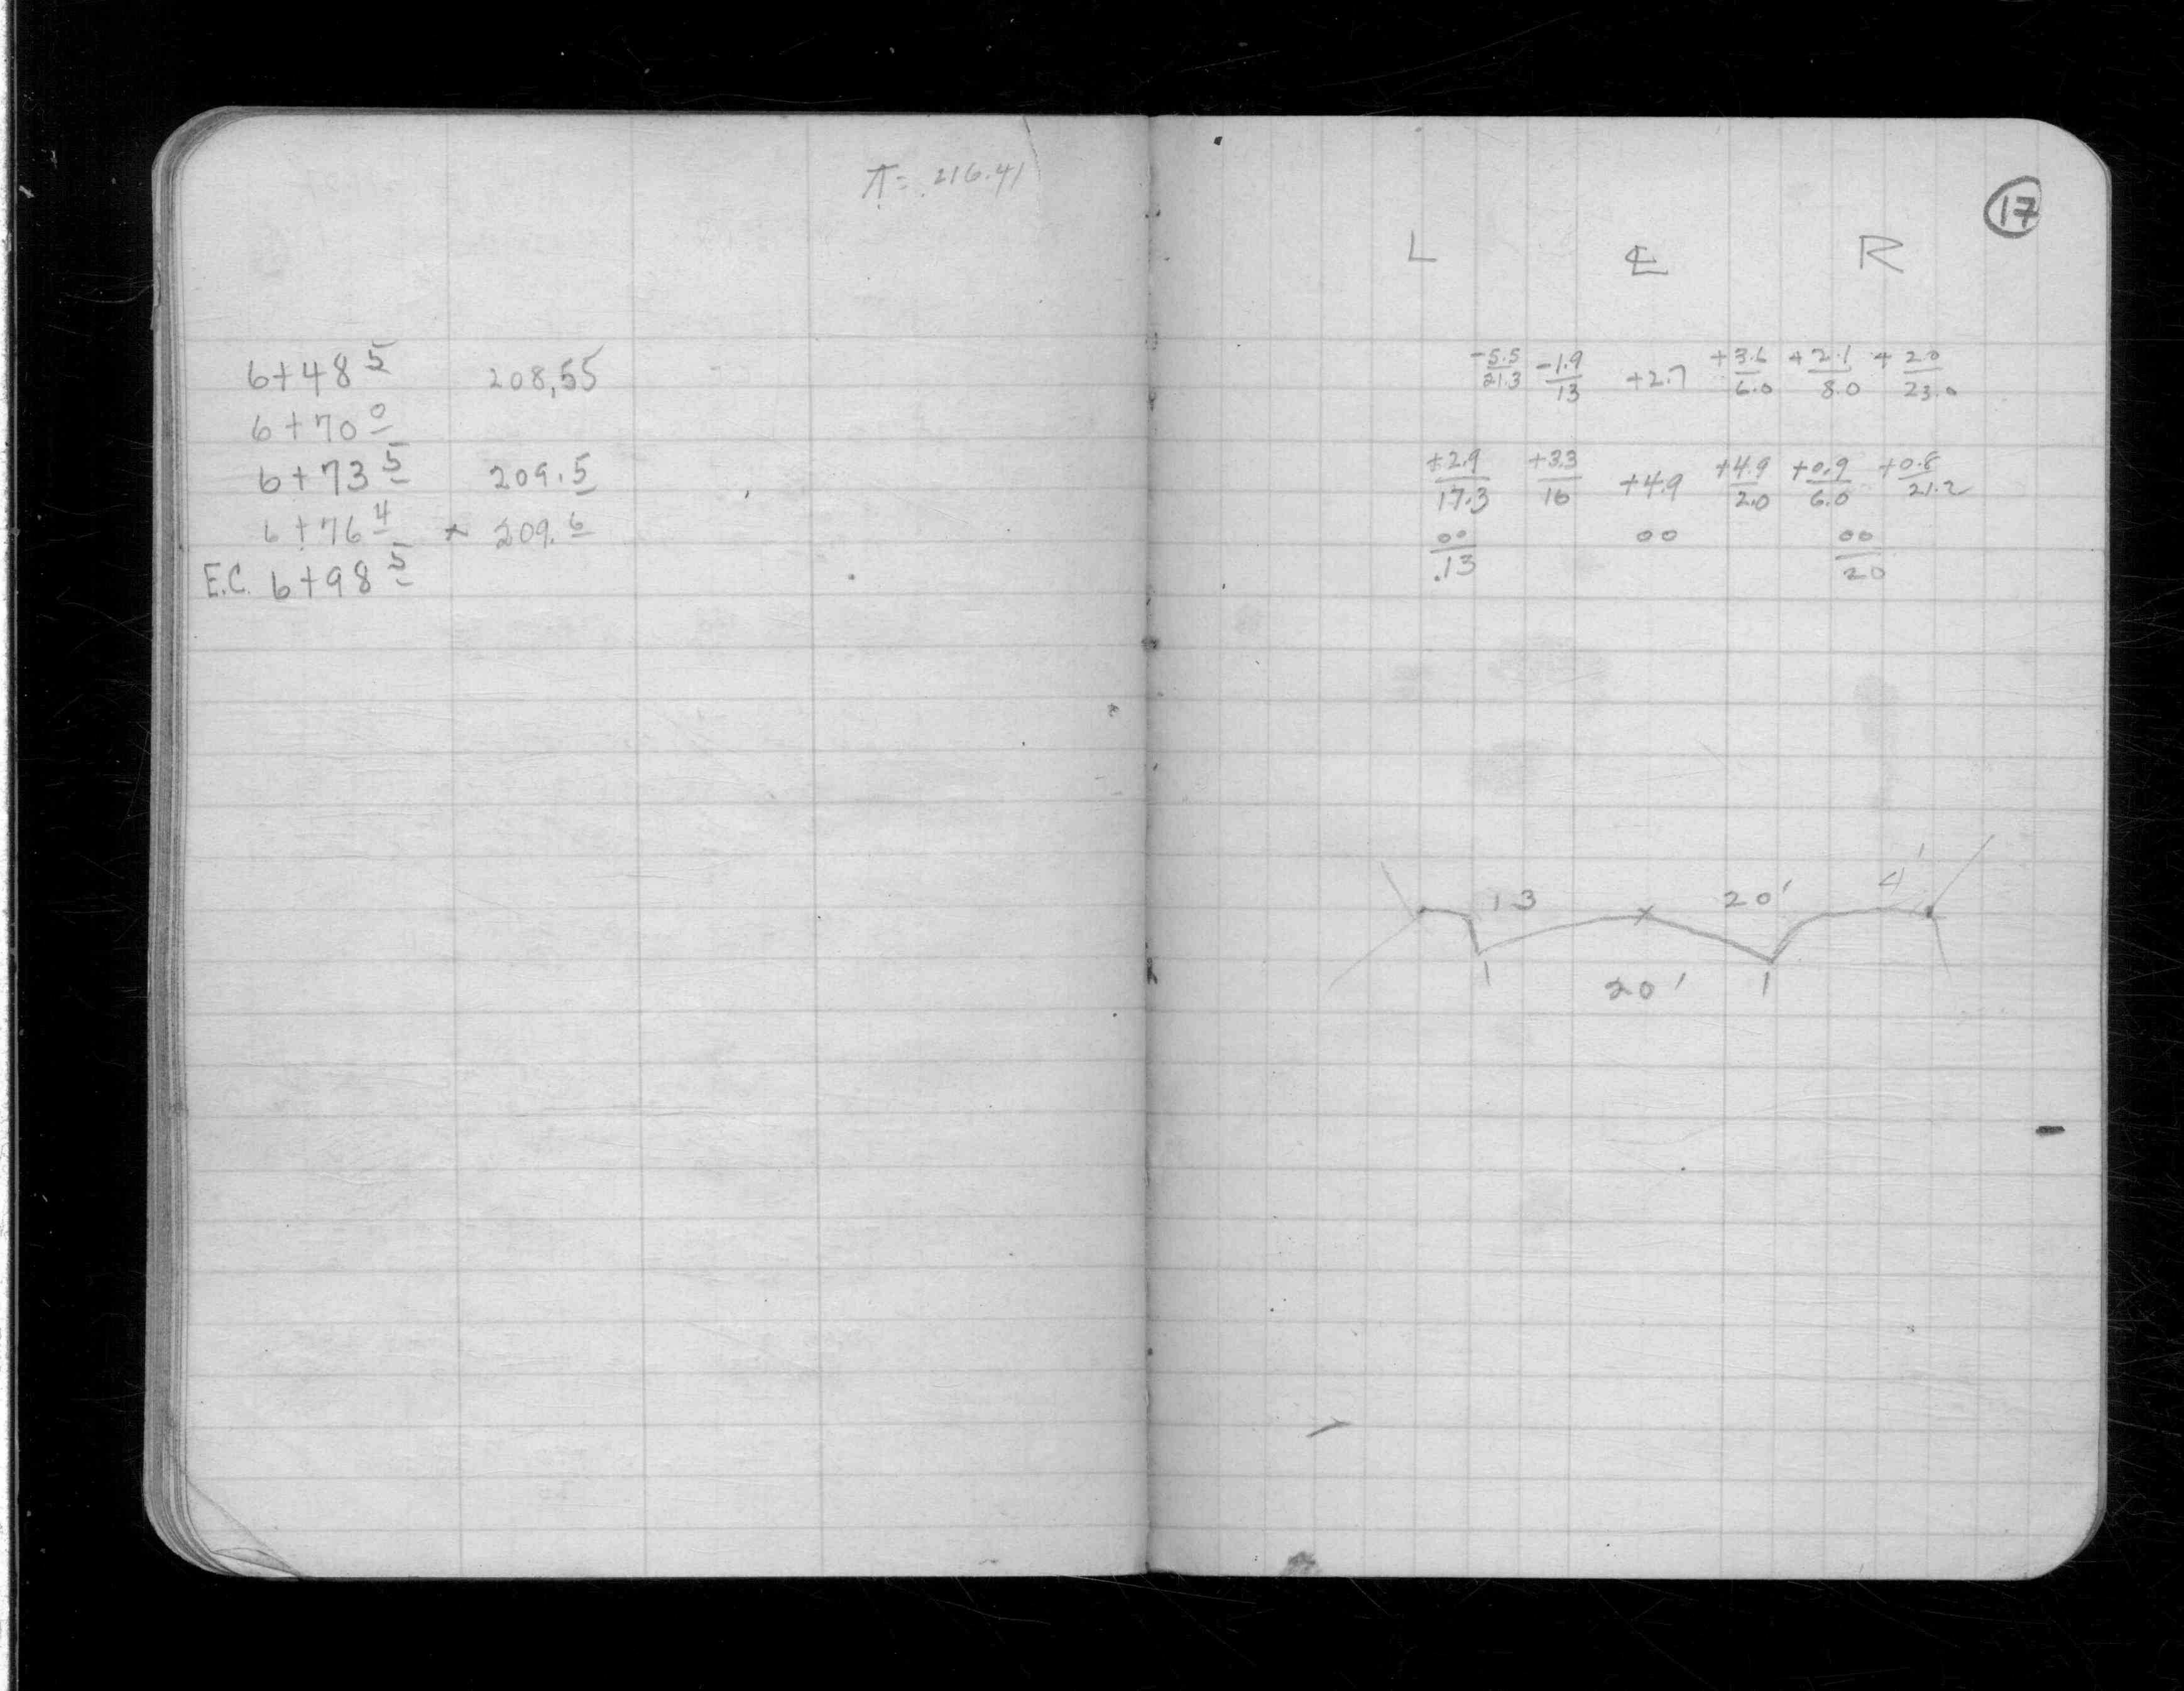 π = 216.41
6+48 5 208.55
6+70 0
6+73 5 209.5
6+76 4 x 209.6
E.C. 6+98 5
17
L ℄ R
-5.5/21.3 -1.9/13 +2.7 +3.6/6.0 +2.1/8.0 +2.0/23.0
+2.9/17.3 +3.3/16 +4.9 +4.9/2.0 +0.9/6.0 +0.8/21.2
00/.13 00 00/20
13 20' 4'
1 20' 1